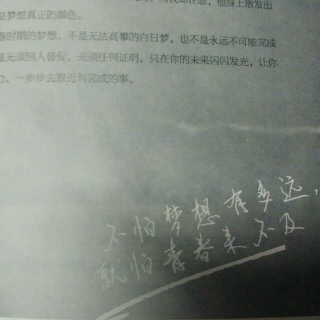 他身上散发出
是梦想真正的颜色。
春时期的梦想,不是无法高攀的白日梦,也不是永远不可能完成
是无须别人督促、无须任何证明,只在你的未来闪闪发光,让你
力、一步步去靠近与完成的事。
不怕梦想有多远,
就怕青春来不及